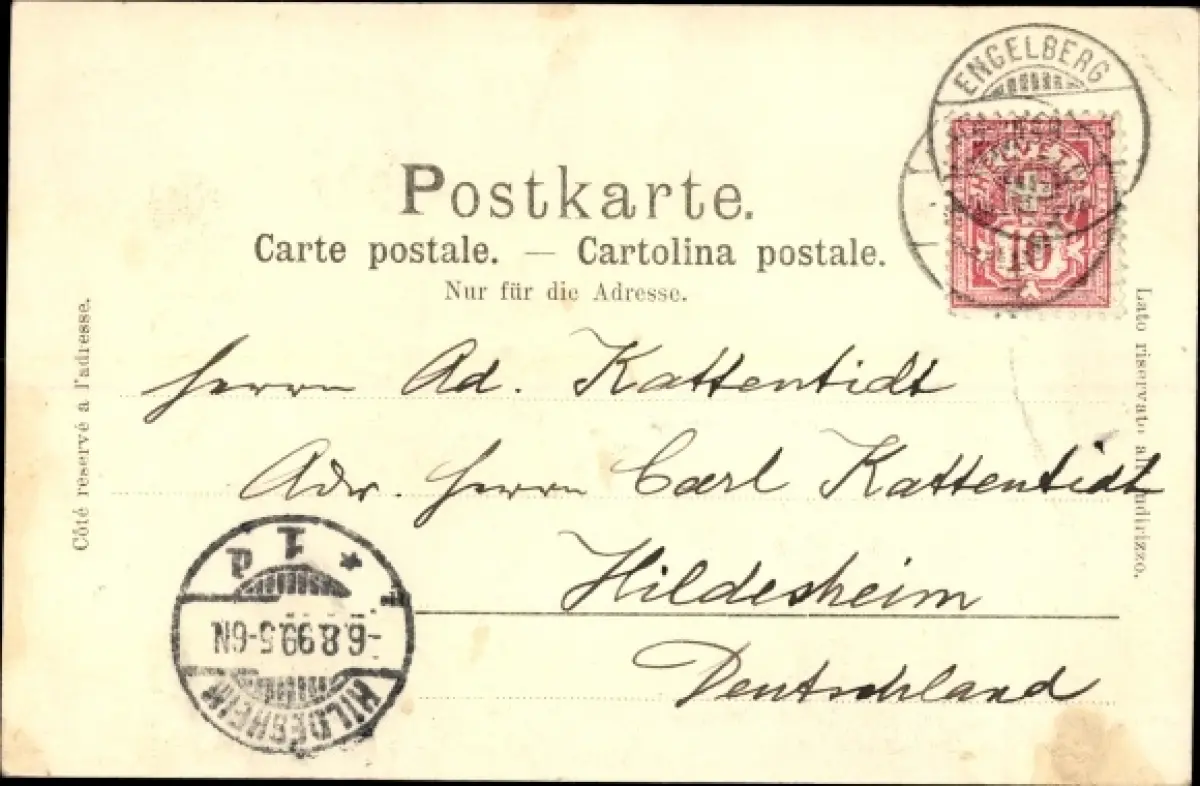 ENGELBERG
HELVETIA
10
Postkarte.
Carte postale. — Cartolina postale.
Nur für die Adresse.
Côté reservé à l'adresse.
Lato riservato all'indirizzo.
Herrn Ad. Kattentidt
Adr. Herrn Carl Kattentidt
Hildesheim
Deutschland
HILDESHEIM
-6.8.99.5-6N
* 1 d